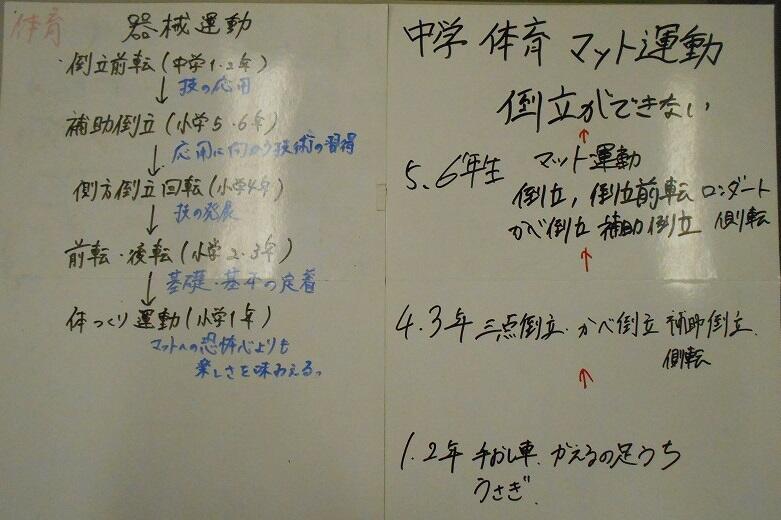 体育
器械運動
・倒立前転(中学1・2年)
↓ 技の応用
補助倒立(小学5・6年)
↓ 応用に向かう技術の習得
側方倒立回転(小学4年)
↓ 技の発展
前転・後転(小学2・3年)
↓ 基礎・基本の定着
体つくり運動(小学1年)
マットへの恐怖心よりも
楽しさを味わえる。
中学 体育 マット運動
倒立ができない
↑
5、6年生 マット運動
倒立, 倒立前転 ロンダート
かべ倒立 補助倒立 側転
↑
4.3年 三点倒立. かべ倒立 補助倒立.
側転
↑
1.2年 手おし車. かえるの足うち
うさぎ.